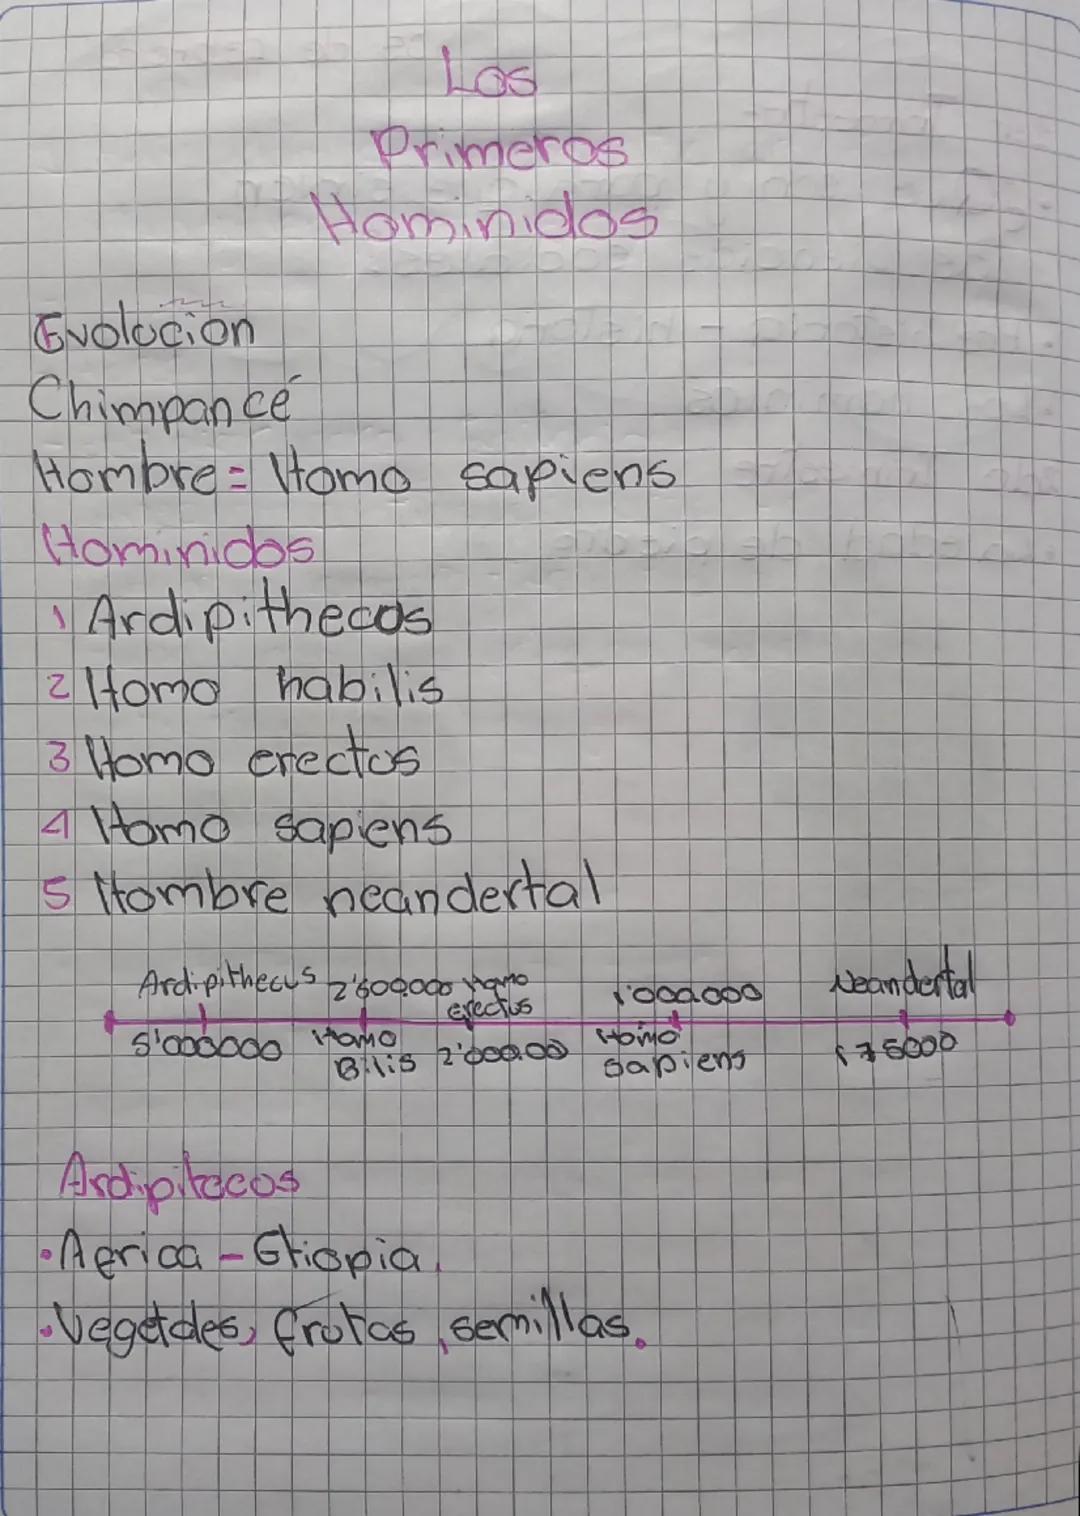 Los
Primeros
Hominidos
Evolucion
Chimpancé
Hombre = Homo sapiens
Hominidos
1 Ardipithecus
2 Homo habilis
3 Homo erectus
4 Homo sapiens
5 Hombre neandertal
Ardipithecus 2'600.000 Homo erectus 1'000.000 Neandertal
5'000000 Homo Bilis 2'000.00 Homo sapiens 175000
Ardipitecos
• Africa - Etiopia.
• Vegetales, frutas, semillas.